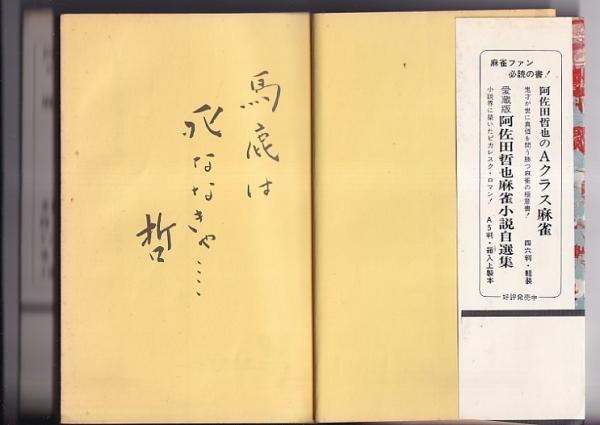 麻雀ファン
必読の書!
阿佐田哲也のAクラス麻雀
鬼才が世に真価を問う勝つ麻雀の極意書!
四六判・軽装
愛蔵版 阿佐田哲也麻雀小説自選集
小説界に築いたピカレスク・ロマン!
A5判・箱入上製本
好評発売中
馬鹿は
死ななきゃ……
哲